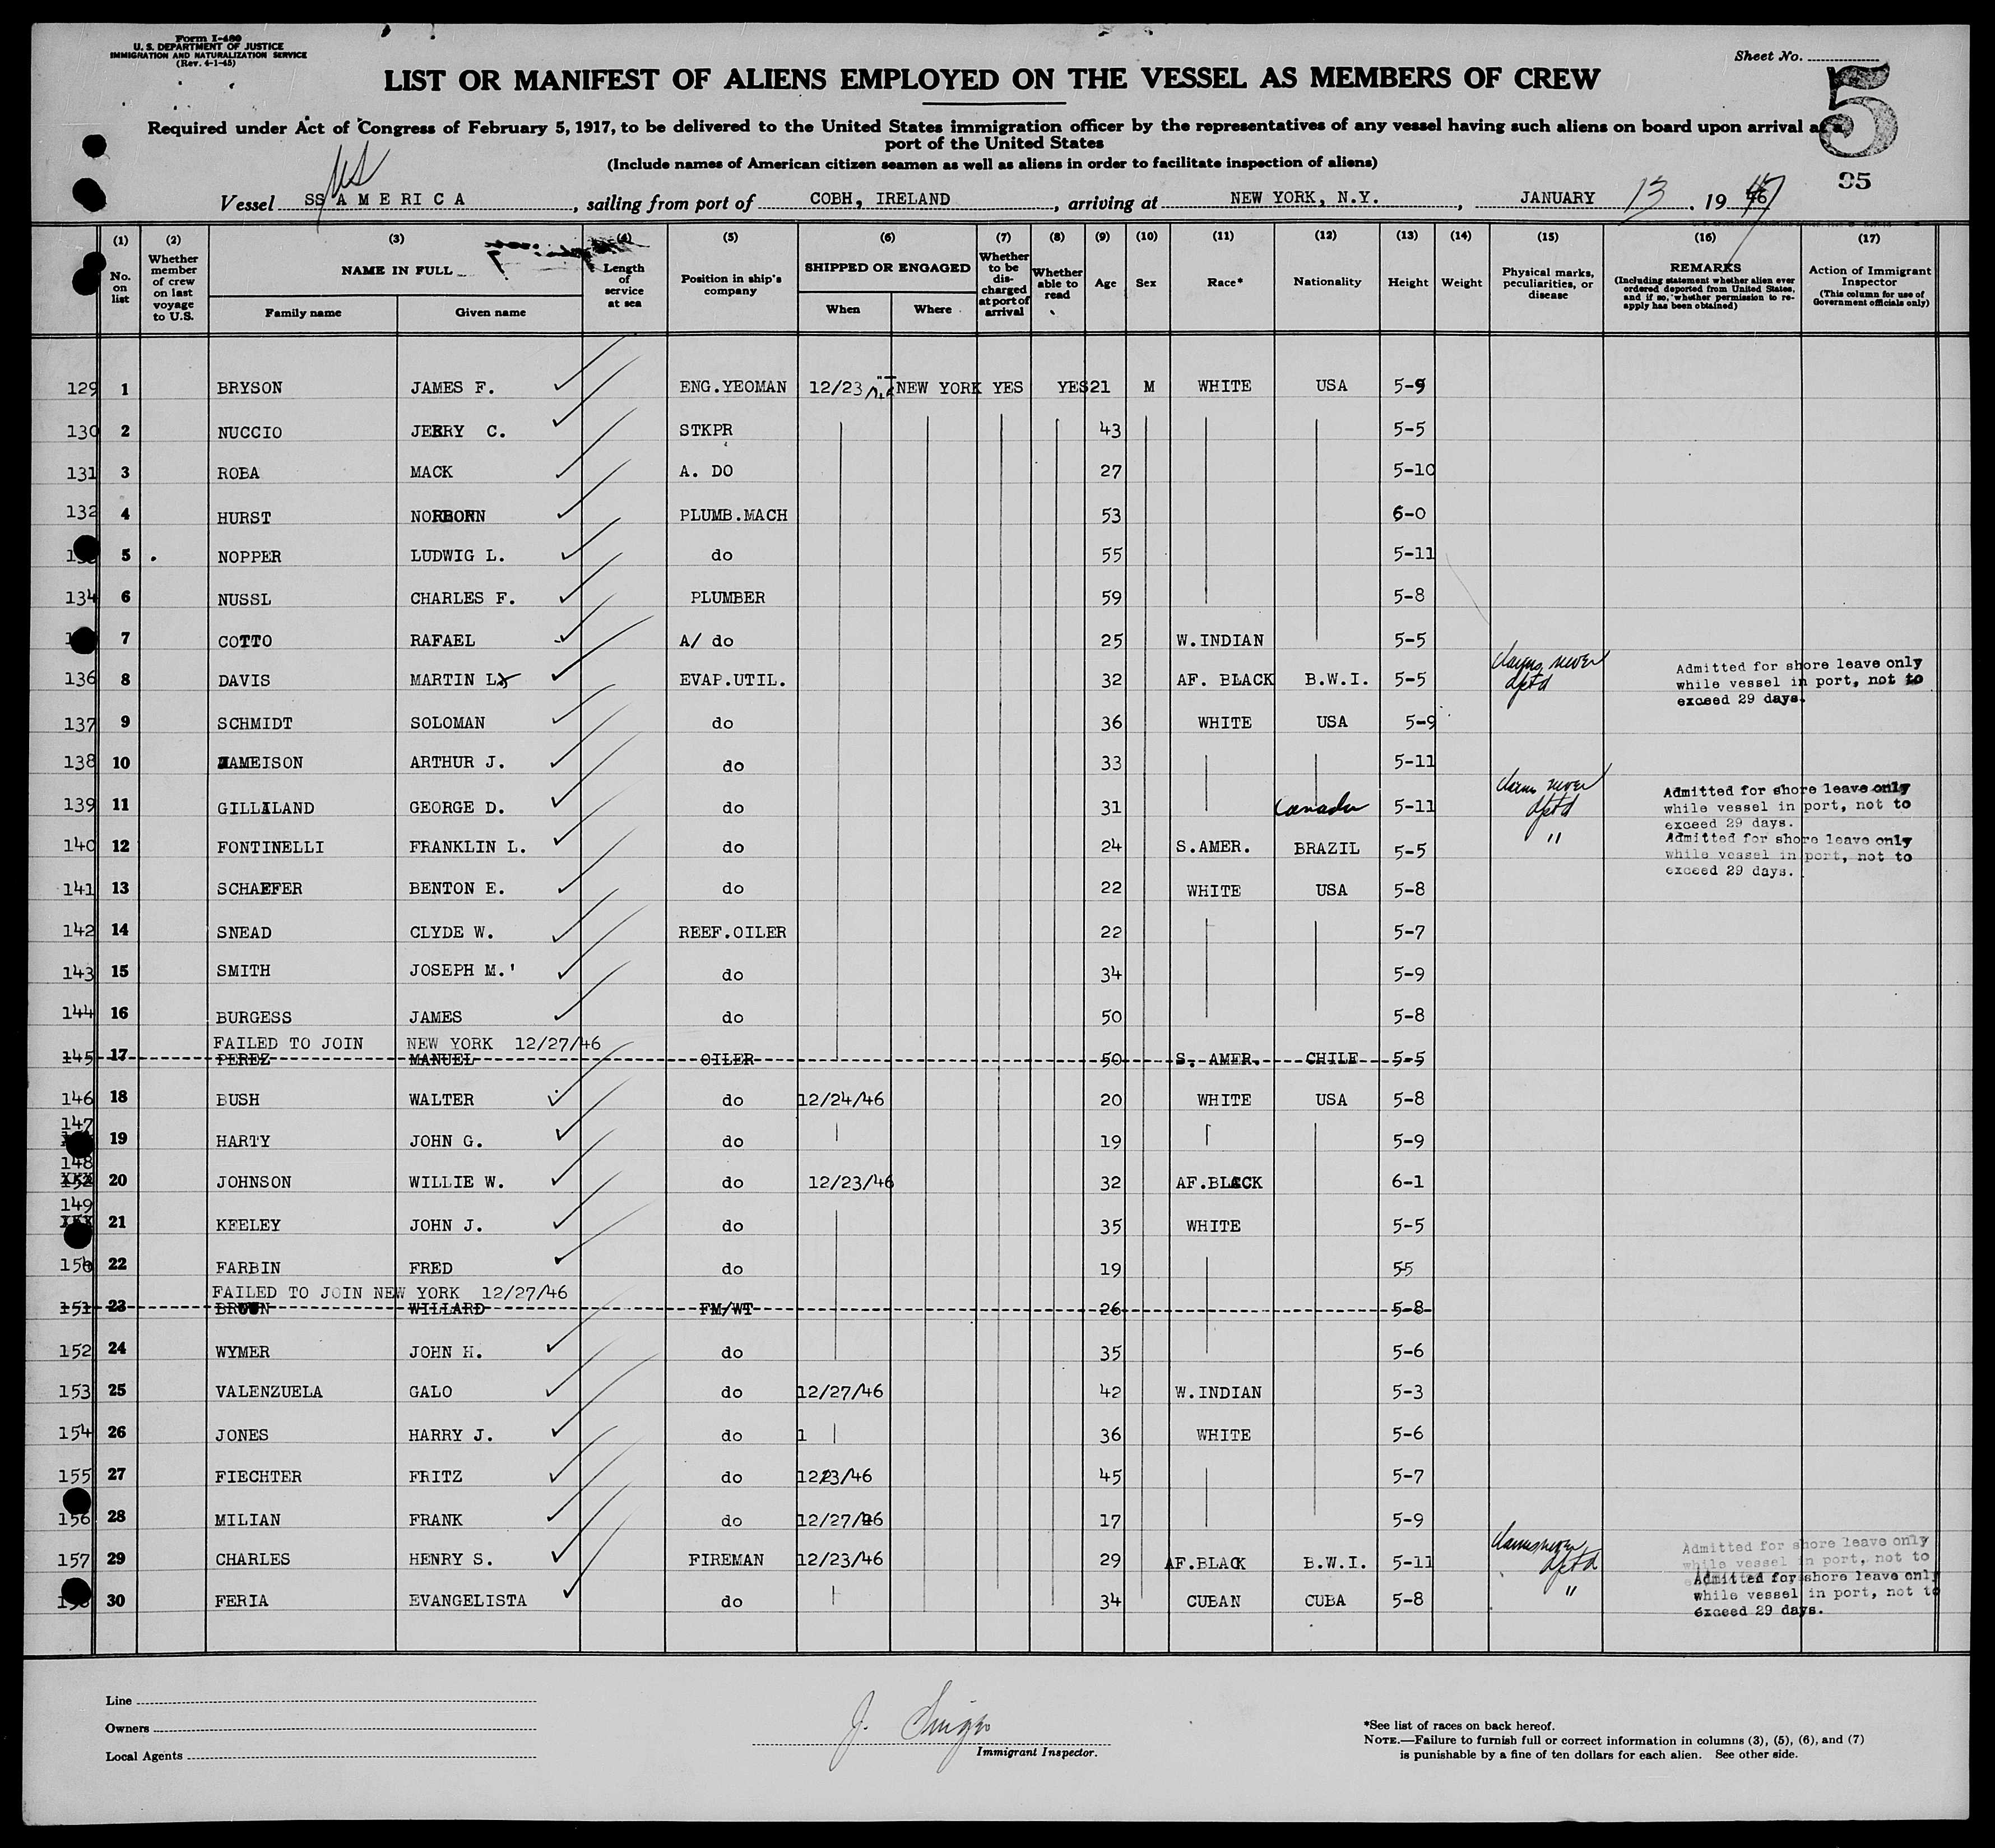 Form I-480
U. S. DEPARTMENT OF JUSTICE
IMMIGRATION AND NATURALIZATION SERVICE
(Rev. 4-1-45)
Sheet No.
5
95
LIST OR MANIFEST OF ALIENS EMPLOYED ON THE VESSEL AS MEMBERS OF CREW
Required under Act of Congress of February 5, 1917, to be delivered to the United States immigration officer by the representatives of any vessel having such aliens on board upon arrival at a
port of the United States
(Include names of American citizen seamen as well as aliens in order to facilitate inspection of aliens)
Vessel SS A M E R I C A, sailing from port of COBH, IRELAND, arriving at NEW YORK, N.Y., JANUARY 13, 19 47
(1) (2) (3) (4) (5) (6) (7) (8) (9) (10) (11) (12) (13) (14) (15) (16) (17)
No. on list
Whether member of crew on last voyage to U.S.
NAME IN FULL
Family name
Given name
Length of service at sea
Position in ship's company
SHIPPED OR ENGAGED
When
Where
Whether to be discharged at port of arrival
Whether able to read
Age
Sex
Race*
Nationality
Height
Weight
Physical marks, peculiarities, or disease
REMARKS
(Including statement whether alien ever ordered deported from United States, and if so, whether permission to reapply has been obtained)
Action of Immigrant Inspector
(This column for use of Government officials only)
129 1 BRYSON JAMES F. ENG.YEOMAN 12/23 NEW YORK YES YES 21 M WHITE USA 5-9
130 2 NUCCIO JERRY C. STKPR 43 5-5
131 3 ROBA MACK A. DO 27 5-10
132 4 HURST NORBORN PLUMB.MACH 53 6-0
5 NOPPER LUDWIG L. do 55 5-11
134 6 NUSSL CHARLES F. PLUMBER 59 5-8
7 COTTO RAFAEL A/ do 25 W.INDIAN 5-5
136 8 DAVIS MARTIN L. EVAP.UTIL. 32 AF. BLACK B.W.I. 5-5 claims never dptd Admitted for shore leave only
while vessel in port, not to
exceed 29 days.
137 9 SCHMIDT SOLOMAN do 36 WHITE USA 5-9
138 10 JAMEISON ARTHUR J. do 33 5-11
139 11 GILLILAND GEORGE D. do 31 Canada 5-11 claims never dptd Admitted for shore leave only
while vessel in port, not to
exceed 29 days.
140 12 FONTINELLI FRANKLIN L. do 24 S.AMER. BRAZIL 5-5 " Admitted for shore leave only
while vessel in port, not to
exceed 29 days.
141 13 SCHAEFER BENTON E. do 22 WHITE USA 5-8
142 14 SNEAD CLYDE W. REEF.OILER 22 5-7
143 15 SMITH JOSEPH M.' do 34 5-9
144 16 BURGESS JAMES do 50 5-8
FAILED TO JOIN NEW YORK 12/27/46
145 17 PEREZ MANUEL OILER 50 S. AMER. CHILE 5-5
146 18 BUSH WALTER do 12/24/46 20 WHITE USA 5-8
147 19 HARTY JOHN G. do 19 5-9
148 20 JOHNSON WILLIE W. do 12/23/46 32 AF.BLACK 6-1
149 21 KEELEY JOHN J. do 35 WHITE 5-5
150 22 FARBIN FRED do 19 55
FAILED TO JOIN NEW YORK 12/27/46
151 23 BROWN WILLARD FM/WT 26 5-8
152 24 WYMER JOHN H. do 35 5-6
153 25 VALENZUELA GALO do 12/27/46 42 W.INDIAN 5-3
154 26 JONES HARRY J. do 1 36 WHITE 5-6
155 27 FIECHTER FRITZ do 12/23/46 45 5-7
156 28 MILIAN FRANK do 12/27/46 17 5-9
157 29 CHARLES HENRY S. FIREMAN 12/23/46 29 AF.BLACK B.W.I. 5-11 claims never dptd Admitted for shore leave only
while vessel in port, not to
30 FERIA EVANGELISTA do 34 CUBAN CUBA 5-8 " Admitted for shore leave only
while vessel in port, not to
exceed 29 days.
Line
Owners
Local Agents
J.
Immigrant Inspector.
*See list of races on back hereof.
NOTE.—Failure to furnish full or correct information in columns (3), (5), (6), and (7)
is punishable by a fine of ten dollars for each alien. See other side.